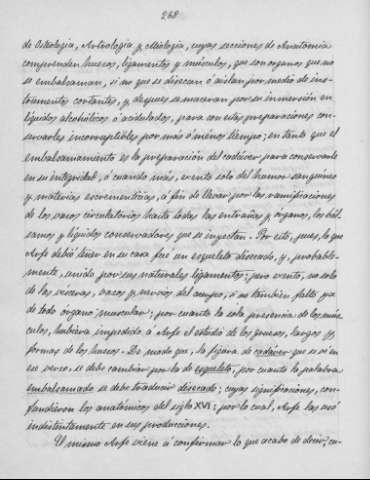 268
de Osteologia, Artrologia y Miologia, cuyas secciones de Anatomia
comprenden huesos, ligamentos y músculos, que son organos que no
se embalsaman, si no que se disecan ó aislan por medio de ins-
trumentos cortantes, y despues se maceran por su inmersión en
líquidos alcohólicos ó acidulados, para con estas preparaciones con-
servarles incorruptibles por más ó ménos tiempo; en tanto que el
embalsamamento es la preparación del cadáver para conservarle
en su integridad, ó cuando más, exento solo del humor sanguineo
y materias escrementicias, a fin de llevar por las ramificaciones
de los vasos circulatorios hasta todas las entrañas y organos, los bál-
samos y líquidos conservadores que se inyectan. Por esto, pues, lo que
Arfe debió tener en su casa fue un esqueleto disecado, y, probable-
mente, unido por sus naturales ligamentos; pero exento, no solo
de las visceras, vasos y nervios del cuerpo, si no tambien falto ya
de todo órgano muscular; por cuanto la sola presencia de los mús-
culos, hubiera impedido á Arfe el estudio de los gruesos, largos y
formas de los huesos. De modo que, la figura de cadáver que se vé en
ese verso, se debe cambiar por la de esqueleto, por cuanto la palabra
embalsamado se debe traducir disecado; cuyas significaciones, con-
fundieron los anatómicos del siglo XVI; por lo cual, Arfe las usó
indistintamente en sus producciones.
El mismo Arfe viene á confirmar lo que acabo de decir, cu-